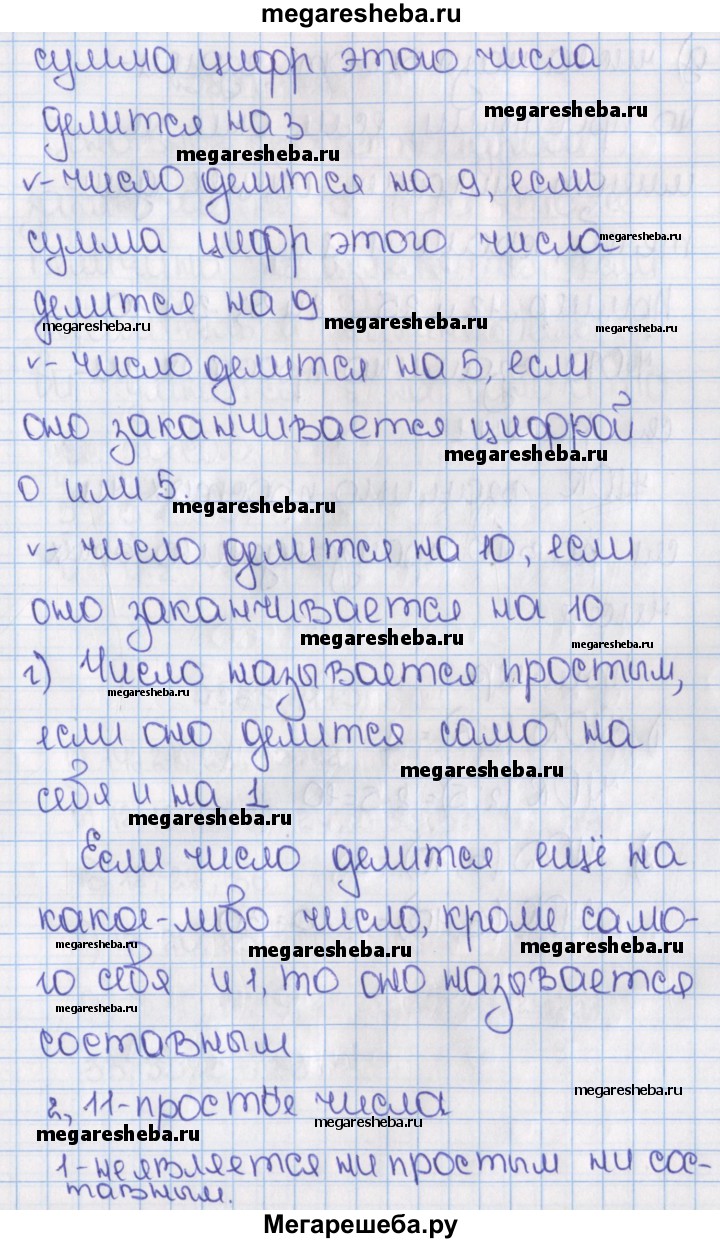 megaresheba.ru
сумма цифр этого числа
megaresheba.ru
делится на 3
megaresheba.ru
v- число делится на 9, если
megaresheba.ru
сумма цифр этого числа
делится на 9
megaresheba.ru megaresheba.ru megaresheba.ru
v- число делится на 5, если
оно заканчивается цифрой
megaresheba.ru
0 или 5.
megaresheba.ru
v- число делится на 10, если
оно заканчивается на 10
megaresheba.ru megaresheba.ru
г) Число называется простым,
megaresheba.ru
если оно делится само на
megaresheba.ru
себя и на 1
megaresheba.ru
Если число делится ещё на
какое-либо число, кроме само-
megaresheba.ru megaresheba.ru megaresheba.ru
го себя и 1, то оно называется
megaresheba.ru
составным
megaresheba.ru
2, 11-простые числа
megaresheba.ru megaresheba.ru
1-не является ни простым ни сос-
тавным.
Мегарешеба.ру